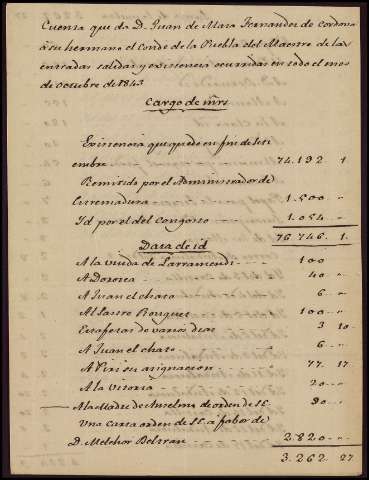 Cuenta que da D. Juan de Mata Fernandez de Cordova
à su hermano el Conde de la Puebla del Maestre de las
entradas salidas y existencia ocurridas en todo el mes
de octubre de 1843
Cargo de mrs
Existencia que quedo en fin de Seti
embre 74.192 1
Remitido por el Administrador de
Estremadura 1.500 "
Id por el del Congosto 1.054 "
76.746. 1.
Data de id
A la viuda de Larramendi 100
A Dorotea 40 "
A Juan el chato 6 "
Al Sastre Rouguet 100 "
Estafetas de varios dias 3 10
A Juan el chato 6 "
A Piri su asignacion 77. 17
A la Vitoria 20 "
A la Madre de Anselma de orden de S.E. 90 "
Una carta orden de S.E. a fabor de
D. Melchor Beltran 2.820 "
3.262 27